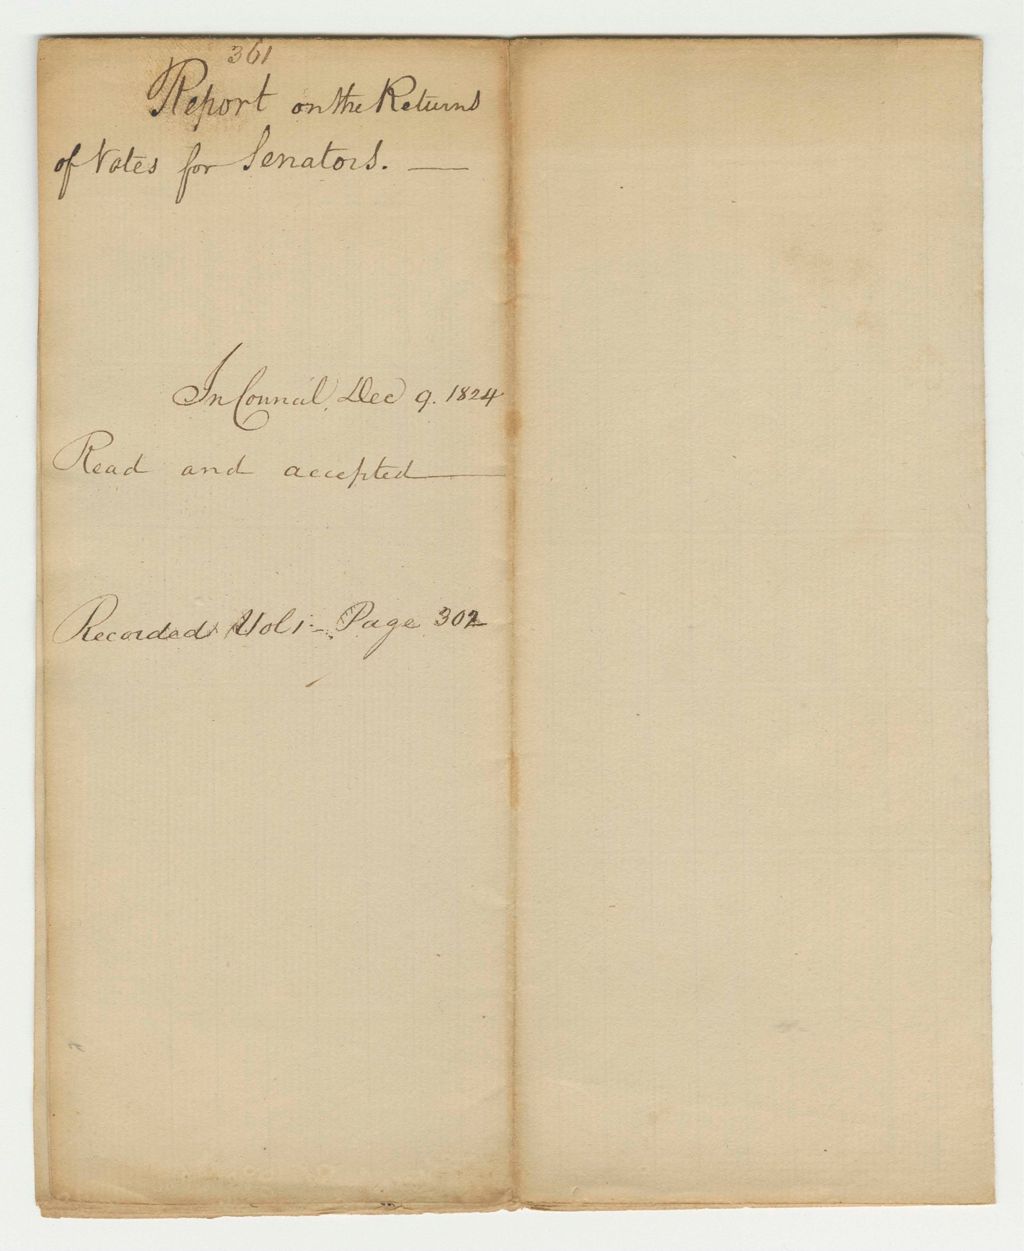 361
Report on the Returns
of Votes for Senators. —
In Council, Dec 9. 1824
Read and accepted —
Recorded Vol 1 - Page 302